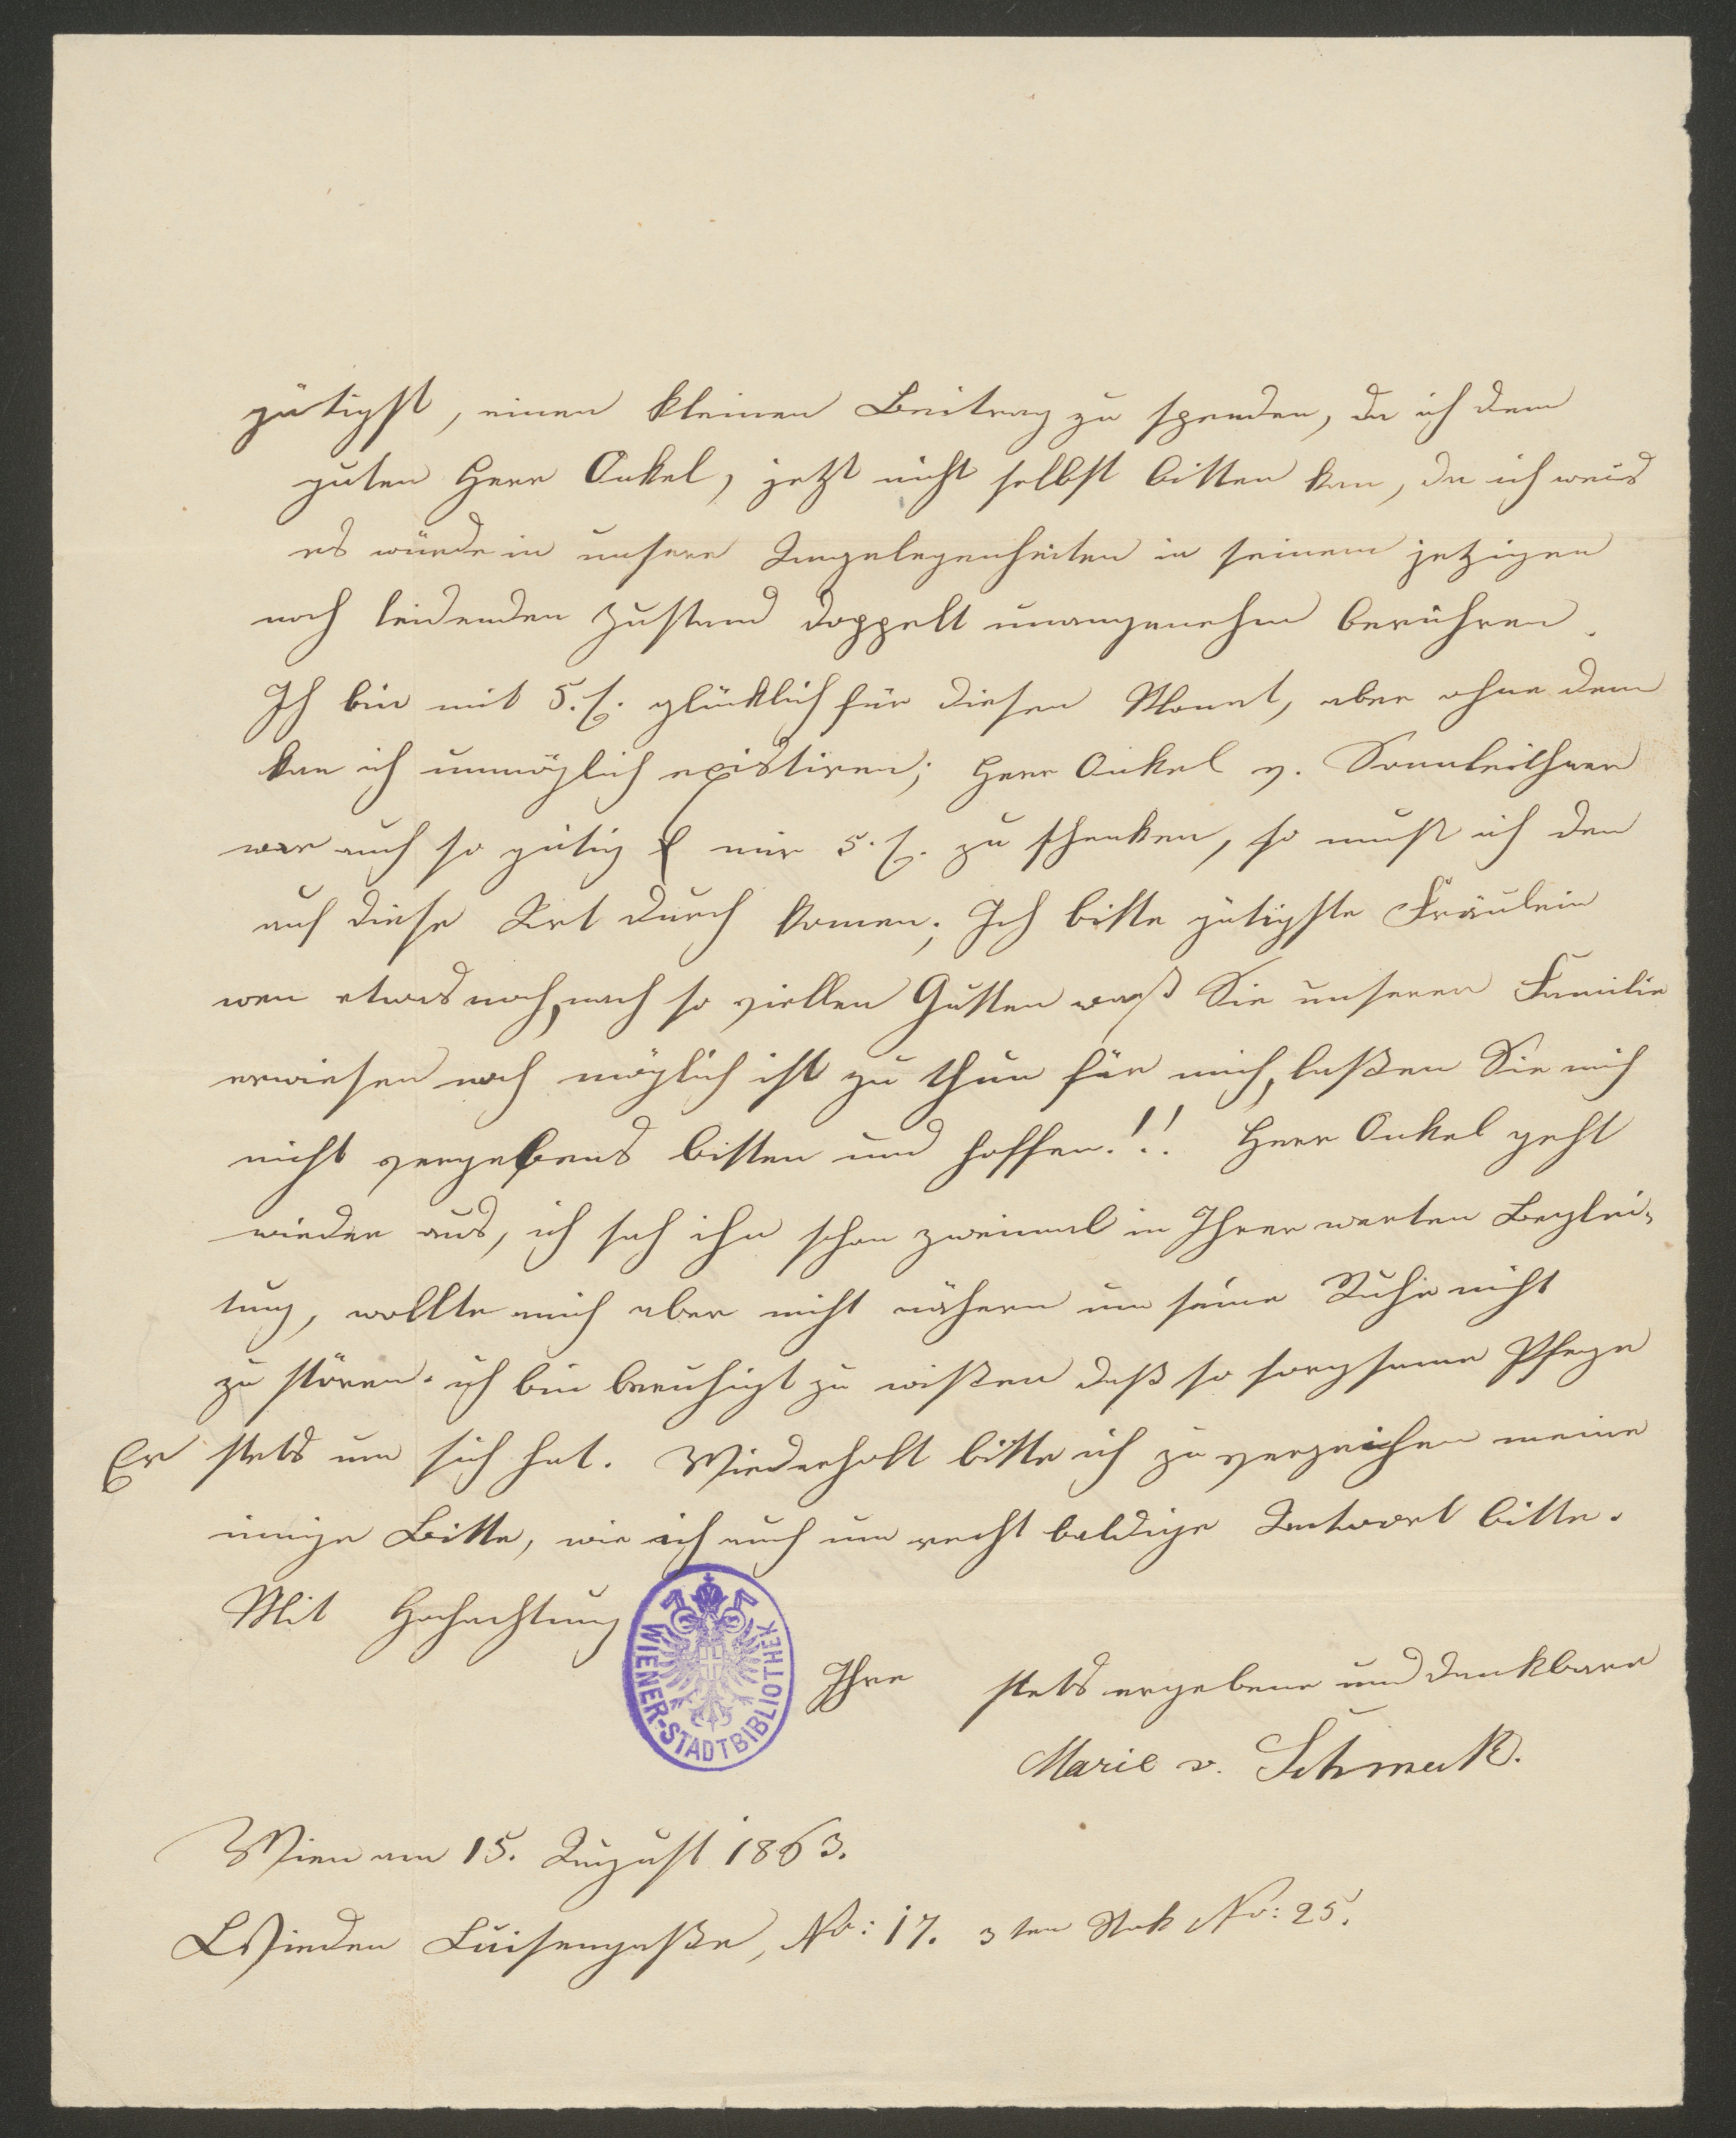 gütigst, einen kleinen Beitrag zu spenden, da ich dem
guten Herr Onkel, jetzt nicht selbst bitten kan, da ich weis
es würde in unsere Angelegenheiten in seinem jetzigen
noch leidenden Zustand doppelt unangenehm berühren.
Ich bin mit 5. f. glücklich für diesen Monat, aber ohne dem
kan ich unmöglich existiren; Herr Onkel v. Sonnleithner
war auch so gütig mir 5. f. zu schenken, so muß ich den
auf diese Art durch komen. Ich bitte gütigste Fräulein
wen etwas noch, nach so viellen Gutten waß Sie unserer Familie
erwiesen noch möglich ist zu thun für mich, laßen Sie mich
nicht vergebens bitten und hoffen.!! Herr Onkel geht
wieder aus, ich sah ihn schon zweimal in Ihrer werten Beglei-
tung, wollte mich aber nicht nähern um seine Ruhe nicht
zu stören. ich bin beruhigt zu wißen daß so sorgsame Pflege
Er stets um sich hat. Wiederholt bitte ich zu verzeihen meine
innige Bitte, wie ich auch um recht baldige Antwort bitte.
Mit Hochachtung
WIENER-STADTBIBLIOTHEK
Ihre stets ergebene und dankbare
Marie v. Schmeck.
Wien am 15. August 1863.
Wieden Luisengaße, No: 17. 3ten Stok No: 25.